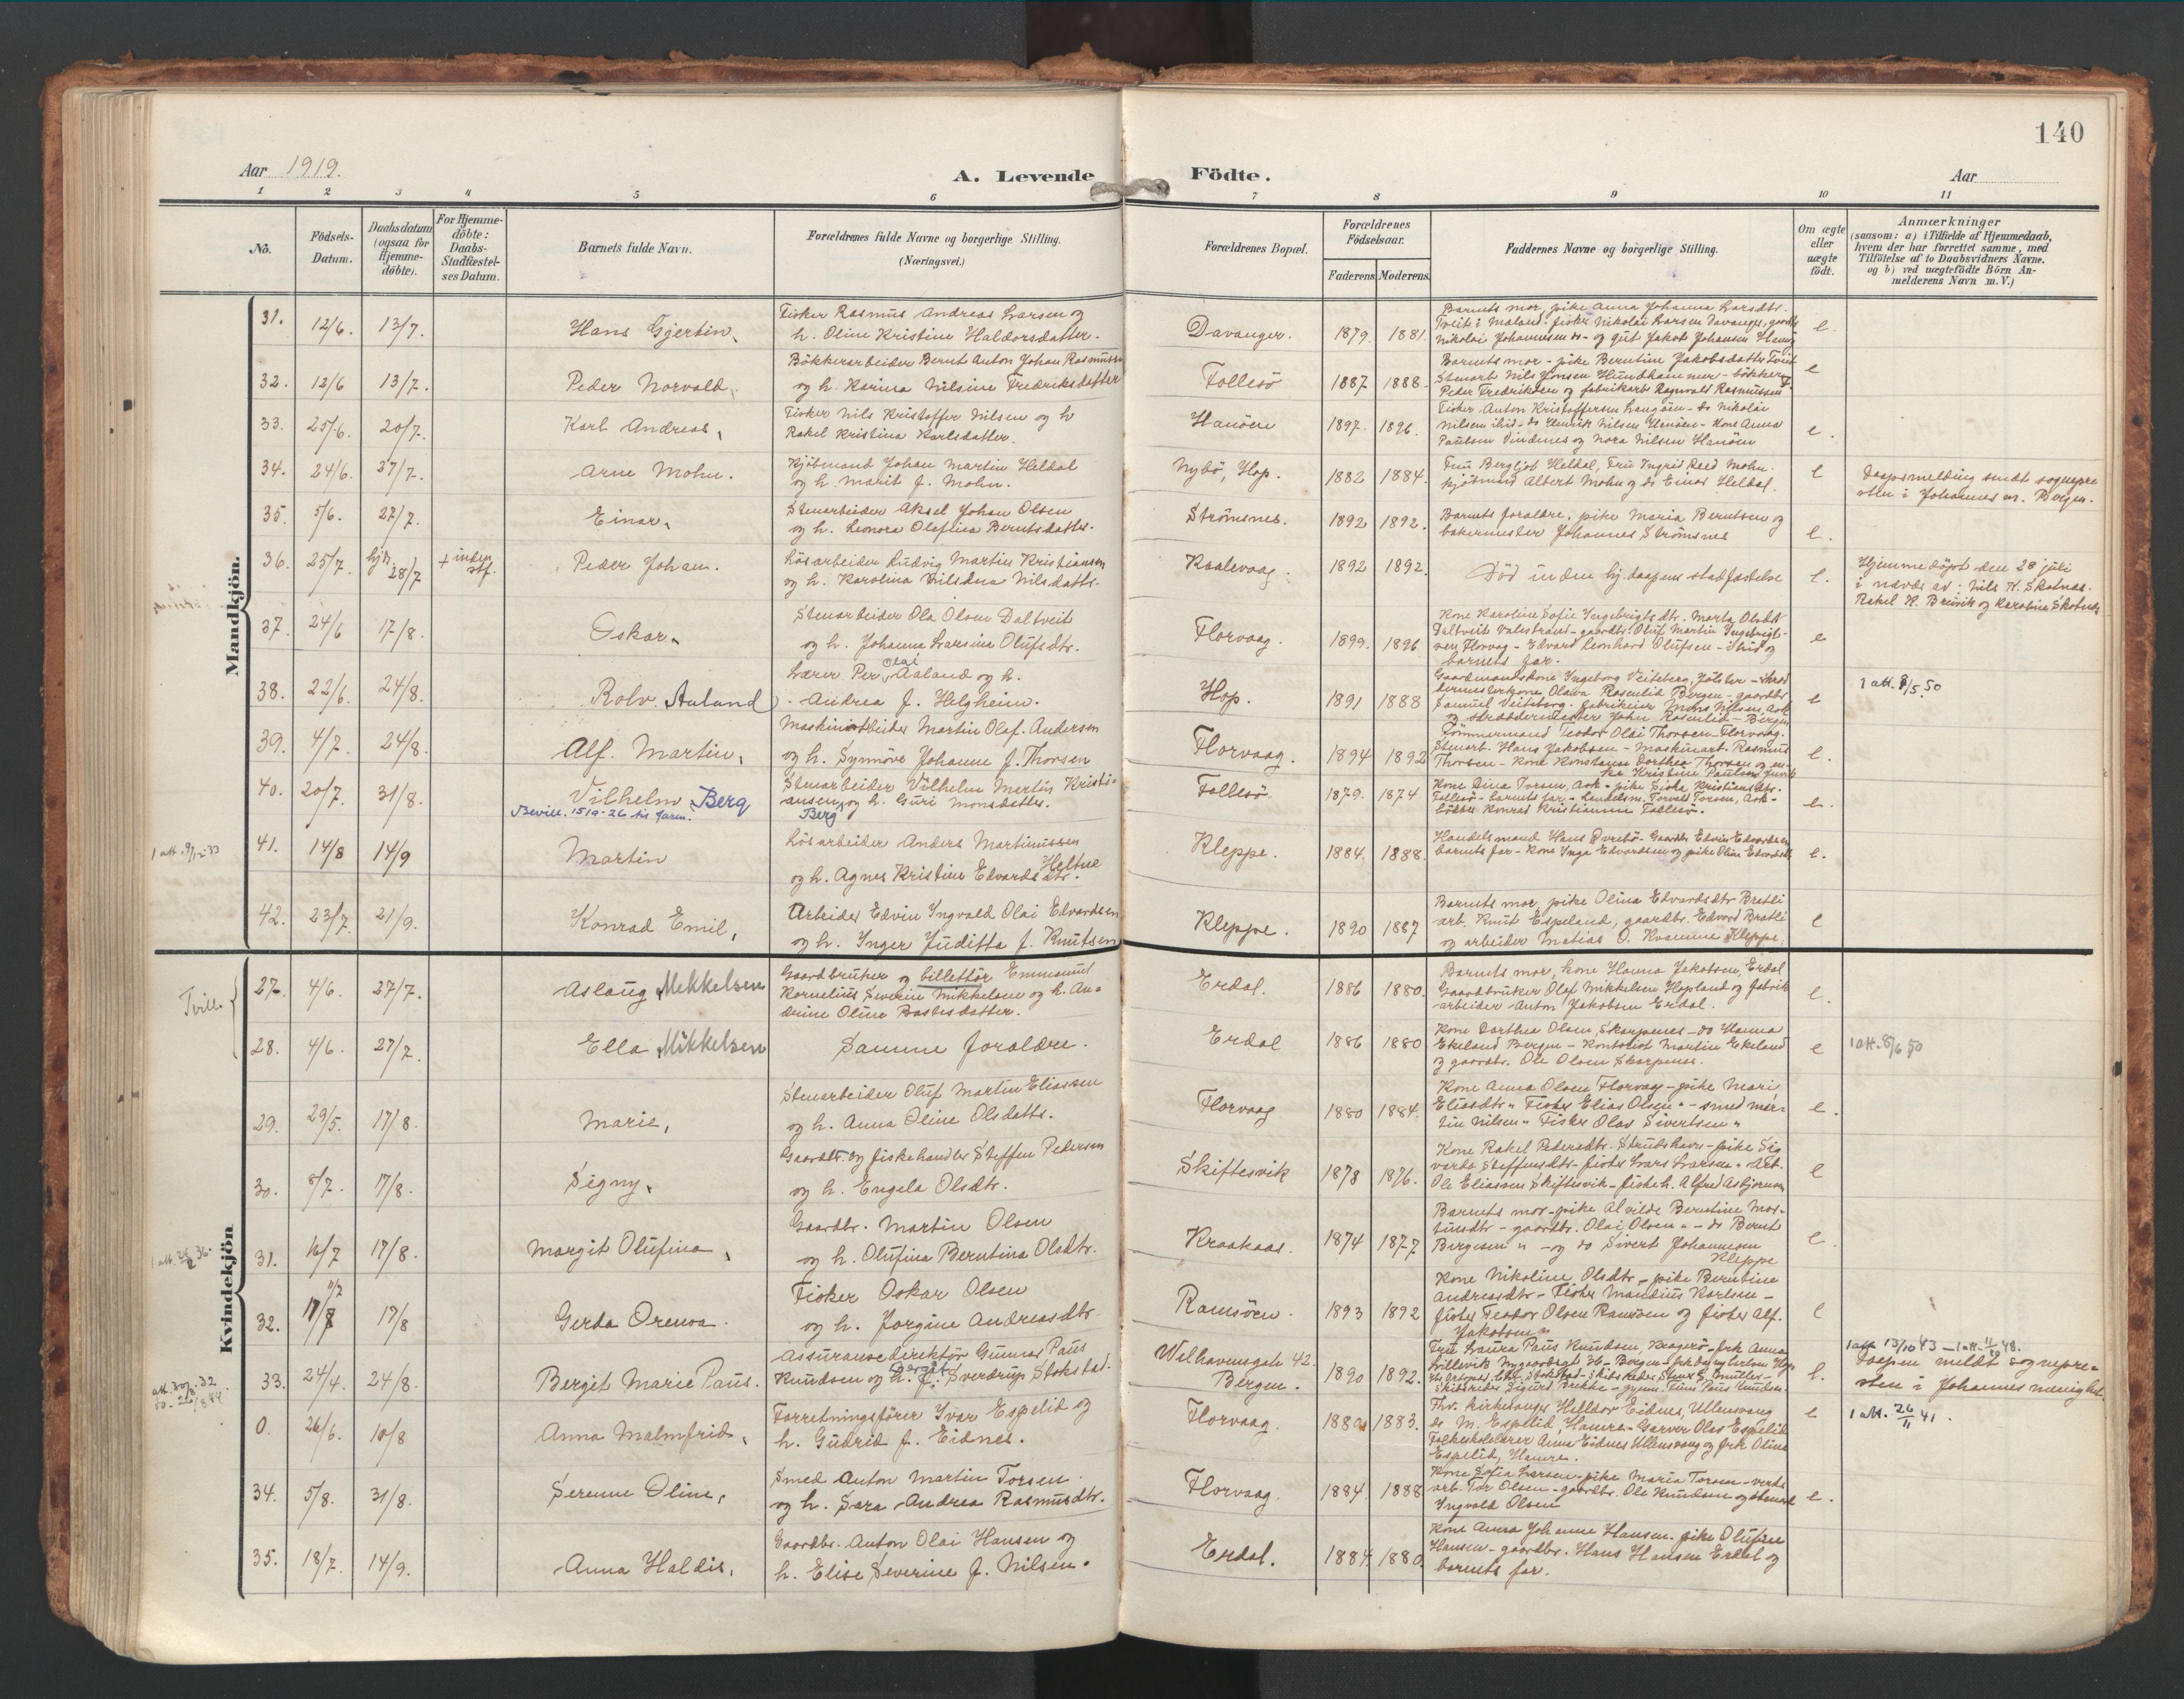 140
Aar 1919.
A. Levende Födte.
Aar
1 2 3 4 5 6 7 8 9 10 11
No.
Födsels-Datum.
Daabsdatum (ogsaa for Hjemme-döbte).
For Hjemme-döbte: Daabs-Stadfæstel-ses Datum.
Barnets fulde Navn.
Forældrenes fulde Navne og borgerlige Stilling. (Næringsvei.)
Forældrenes Bopæl.
Forældrenes Födselsaar.
Faderens Moderens.
Faddernes Navne og borgerlige Stilling.
Om ægte eller uægte födt.
Anmærkninger
(saasom: a) i Tilfælde af Hjemmedaab, hvem der har forrettet samme, med Tilföielse af to Daabsvidners Navne. og b) ved uægtefödte Börn An-melderens Navn m. V.)
Mandkjön.
31. 12/6. 13/7. Hans Gjertin.
Fisker Rasmus Andreas Larsen og
h. Oline Kristine Haldorsdatter.
Davanger. 1879. 1881.
Barnets mor, pike Anna Johanna Larsdtr.
Tveit i Maland. fisker Nikolai Larsen Davanger, gaardb
Nikolai Johannesen do - og gut Jakob Johansen Haug
e.
32. 12/6 13/7. Peder Norvald.
Bökkerarbeider Bernt Anton Johan Rasmussen
og h. Karina Nilsine Fredriksdatter
Follesö 1887 1888.
Barnets mor - pike Berntine Jakobsdatter Tveit
Stenarb Nils Jonsen Hundhammer - bökker
Peder Fredriksen og fabrikarb Ragnvald Rasmussen
e
33. 25/6. 20/7. Karl Andreas,
Fisker Nils Kristoffer Nilsen og h
Rakel Kristina Karlsdatter.
Hanöen 1897. 1896.
Fisker Anton Kristoffersen Langöen - do Nikolai
Nilsen ibid - do Henrik Nilsen Hanöen - Kone Anna
Paulsen Vindenes og Nora Nilsen Hanöen
e.
34. 24/6. 27/7. Arne Mohn.
Kjöbmand Johan Martin Heldal
og h. Marit f. Mohn.
Nybö, Hop. 1882 1884.
Fru Bergljot Heldal, Fru Ingrid Reed Mohn.
Kjöbmand Albert Mohn og do Einar Heldal.
e
Daapsmelding sendt sognepre
sten i Johannes m. Bergen.
35. 5/6. 27/7. Einar,
Stenarbeider Aksel Johan Olsen
og h. Leonora Olafina Berntsdatter.
Strömsnes. 1892 1892.
Barnets foraldre, pike Maria Berntsen og
bakermester Johannes Strömsnes
e.
36. 25/7. hjd. 28/7 + inden stf. Peder Johan.
Lösarbeider Ludvig Martin Kristiansen
og h. Karolina Nilsdna Nilsdattr.
Kaalevaag. 1892 1892.
Död inden hj.daapens stadfæstelse
e.
Hjemmedöpt den 28 juli
i nærvær av: Nils K. Skotnes.
Rakel K. Breivik og Karoline Skotnes
37. 24/6 17/8. Oskar,
Stenarbeider Ola Olsen Daltveit
og h. Johanna Larsine Olufsdtr.
Florvaag. 1899. 1896
Kone Karoline Sofie Ingebrigtsdtr. Marta Olsdtr
Daltveit Valestrand - gaardbr. Oluf Martin Ingebrigt-
sen Florvag - Edvard Leonhard Olufsen - ibid og
barnets far.
e
38. 22/6. 24/8. Rolv Aaland
Lærer Per Olai Aaland og h.
Andrea J. Helgheim.
Hop. 1891 1888
Gaardmandskone Ingeborg Veiteberg, Jölster - skræd
dermesterkone Olava Rosenlid Bergen - gaardbr
Samuel Veiteberg. fabrikeier Mons Nilsen, Ask
og skræddermester John Rosenlid - Bergen
e
1 att. 8/5.50
39. 4/7. 24/8. Alf. Martin,
Maskinarbeider Martin Olaf. Andersen
og h. Synnöve Johanne f. Thorsen
Florvaag. 1894 1892
Tömmermand Teodor Olai Thorsen - Florvaag.
Stenarb. Hans Jakobsen - Maskinarb. Rasmus
Thorsen - Kone Konstanse Dorthea Thorsen og en-
ke Kristine Paulsen
e.
40. 20/7. 31/8. Vilhelm Berg
Bevill. 15/9-26 til faren.
Stenarbeider Vilhelm Martin Kristi-
ansen og h. Guri Monsdatter.
Berg
Follesö 1879. 1874
Kone Dina Torsen, Ask - pike Siska Kristiansdtr.
Follesö - barnets far - Landelsm. Torvald Torsen, Ask -
bökker Konrad Kristiansen Follesö.
e.
1 att. 9/12-33
41. 14/8 14/9 Martin
Lösarbeider Anders Martinussen Heltne
og h. Agnes Kristine Edvardsdtr.
Kleppe. 1884. 1888.
Handelsmand Hans Övrebö - Gaardbr Edvin Edvardsen
barnets far - Kone Inga Edvardsen og pike Oline Edvardsdtr
e.
42. 23/7. 21/9. Konrad Emil,
Arbeider Edvin Ingvald Olai Edvardsen
og h. Inger Juditta f. Knutsen
Kleppe. 1890 1887
Barnets mor, pike Olina Edvardsdtr Bratli
arb. Knut Espeland, gaardbr. Edvard Bratli
og arbeider Matias O. Kvamme Kleppe.
e
Kvindekjön
Tvill.
27. 4/6. 27/7. Aslaug Mikkelsen
Gaardbruker og billettör Emmanuel
Kornelius Severin Mikkelsen og h. An-
denne Oline Bastisdatter.
Erdal. 1886 1880.
Barnets mor, kone Hanna Jakobsen, Erdal
Gaardbruker Olaf Mikkelsen Hopland og fabrik
arbeider Anton Jakobsen Erdal.
e.
28. 4/6. 27/7. Ella Mikkelsen
Samme foraldre.
Erdal 1886 1880
Kone Dorthea Olsen, Skarpenes - do Hanna
Ekeland Bergen - Kontorist Martin Ekeland
og gaardbr. Ole Olsen Skarpenes.
e
1 att. 8/6 50
29. 29/5. 17/8. Marie,
Stenarbeider Oluf Martin Eliassen
og h. Anna Oline Olsdattr.
Florvaag 1880 1884.
Kone Anna Olsen Florvaag - pike Mari
Eliasdtr " Fisker Elias Olsen " - smed Mar-
tin Nilsen " Fisker Olav Sivertsen "
e.
30. 8/7. 17/8. Signy,
Gaardbr. og fiskehandler Steffen Pedersen
og h. Engela Olsdtr.
Skiftesvik 1878 1876.
Kone Rakel Pedersdtr. Strudshavn - pike Sig
varda Steffensdtr - fisker Lars Larsen " Arb.
Ole Eliassen Skiftesvik - fiskeh. Alfred Asbjörnsen
e
1 att. 24/2 36.
31. 16/7 17/8. Margit Olufina,
Gaardbr. Martin Olsen
og h. Olufina Berntina Olsdtr.
Kraakaas. 1874 1877
Barnets mor - pike Alvilde Berntine Mar-
tinsdtr - gaardbr. Olai Olsen " - do Bernt
Bergesen " - og do Sivert Johannesen
Kleppe
e.
32. 17/7 17/8 Gerda Orensa.
Fisker Oskar Olsen
og h. Jorgine Andreasdtr
Ramsöen. 1893 1892
Kone Nikoline Olsdtr - pike Berntine
Andreasdtr - Fisker Mandius Karlsen -
fisker Teodor Olsen Ramsöen og fisker Alf.
Jakobsen "
e
att. 30/8. 32
33. 24/4. 24/8. Bergit Marie Paus.
Assuransedirektör Gunnar Paus
Knudsen og h. Bergit f. Sverdrup Stokstad.
Welhavensgate 42.
Bergen.
1890 1892.
Fru Laura Paus Knudsen, Kragerö - frk Anna
Skibsreder Sigurd Brekke -
e.
1 att. 13/10 43 - 1 att. 11/10 48.
Daapen meldt sognepre-
sten i Johannes menighet
0. 26/6. 10/8 Anna Malmfrid,
Forretningsförer Ivar Espelid og
h. Gudrid f. Eidnes.
Florvaag. 1880 1883.
Fhv. kirkesanger Helldor Eidnes, Ullensvang
do M. Espelid, Hamre - Garver Olav Espelid
Folkeskolelærer Anna Eidnes Ullensvang og frk Olina
Espelid, Hamre.
e
1 att. 26/11 41.
34. 5/8. 31/8. Serenne Oline,
Smed Anton Martin Torsen.
og h. Sara Andrea Rasmusdtr.
Florvaag. 1884. 1888
Kone Sofia Larsen - pike Maria Torsen - verks
arb. Tor Olsen - gaardbr. Ole Knudsen og stenarb
Ingvald Olsen
e.
35. 18/7. 14/9. Anna Haldis,
Gaardbr. Anton Olai Hansen og
h. Elise Severine f. Nilsen.
Erdal. 1884. 1880.
Kone Anna Johanne Hansen. pike Olufine
Hansen - gaardbr. Hans Hansen Erdal og
barnets far.